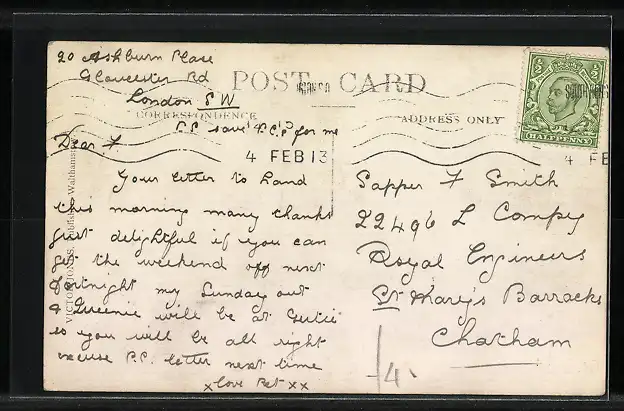 20 Ashburn Place
Gloucester Rd
London S W
POST CARD
CORRESPONDENCE
ADDRESS ONLY
HALFPENNY
P.S. save P.C.s for me
4 FEB 13
4 FE
Dear F
Your letter to hand
this morning many thanks
just delightful if you can
get the weekend off next
fortnight my Sunday out
& Greenie will be at
so you will be all right
excuse P.C. letter next time
x love Pet x x
Sapper F Smith
22496 L Compy
Royal Engineers
St Mary's Barracks
Chatham
4